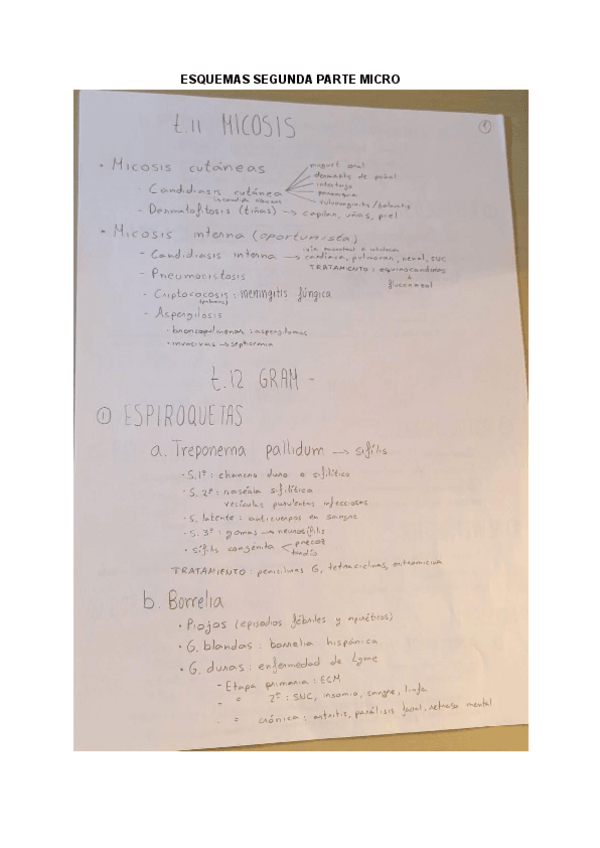 ESQUEMAS SEGUNDA PARTE MICRO
t.11 MICOSIS
1
• Micosis cutáneas
- Candidiasis cutánea
muguet oral
dermatitis de pañal
intertrigo
paroniquia
vulvovaginitis/balanitis
- Dermatofitosis (tiñas) → capilar, uñas, piel
• Micosis interna (oportunista)
- Candidiasis interna → cardíaca, pulmonar, renal, SNC
TRATAMIENTO: equinocandinas
↓
fluconazol
- Pneumocistosis
- Criptococosis: meningitis fúngica
- Aspergilosis
• broncopulmonar: aspergilomas
• invasivas → septicemia
t.12 GRAM -
① ESPIROQUETAS
a. Treponema pallidum → sífilis
• S.1º: chancro duro o sifilítico
• S. 2º: roséola sifilítica
vesículas purulentas infecciosas
• S. latente: anticuerpos en sangre
• S. 3º: gomas → neurosífilis
• sífilis congénita
precoz
tardío
TRATAMIENTO: penicilina G, tetraciclinas, eritromicina
b. Borrelia
• Piojos (episodios febriles y apiréticos)
• G. blandas: borrelia hispánica
• G. duras: enfermedad de Lyme
- Etapa primaria: ECM
- " 2º: SNC, insomio, sangre, linfa
- " crónica: artritis, parálisis facial, retraso mental